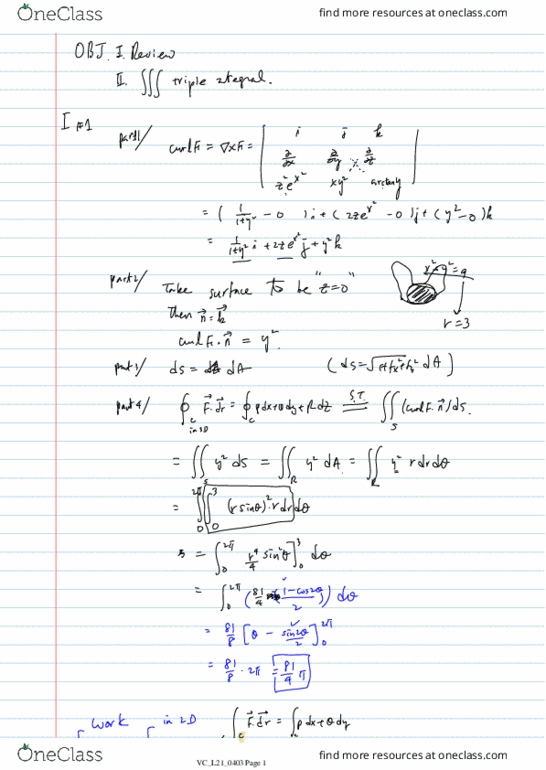 OneClass
find more resources at oneclass.com
OBJ. I. Review
II. ∭ triple integral.
I #1
part1/ curl F = ∇×F = | i j k
∂/∂x ∂/∂y ∂/∂z
z²e^{x²} xy² arctan y |
= ( 1/(1+y²) − 0 ) i + ( 2ze^{x²} − 0 ) j + ( y² − 0 ) k
= 1/(1+y²) i + 2ze^{x²} j + y² k
part2/ Take surface to be "z=0"
x²+y²=9
r=3
Then n⃗ = k⃗
curl F · n⃗ = y²
part3/ ds = dA (ds = √(1+fx²+fy²) dA)
part4/ ∮ F⃗·dr⃗ = ∮ Pdx+Qdy+Rdz = S.T. ∬ (curl F · n⃗) ds.
C in 3D C S
= ∬_S y² ds = ∬_R y² dA = ∬_R y² r dr dθ
= ∫_0^{2π} ∫_0^3 (r sinθ)² · r dr dθ
= ∫_0^{2π} r⁴/4 sin²θ ]_0^3 dθ
= ∫_0^{2π} ( 81/4 (1−cos2θ)/2 ) dθ
= 81/8 [ θ − sin2θ/2 ]_0^{2π}
= 81/8 · 2π = 81/4 π
work in 2D ∫_C F⃗·dr⃗ = ∫ P dx + Q dy
OneClass
find more resources at oneclass.com
VC_L21_0403 Page 1